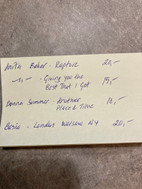 Anita Baker - Rapture 20,-
-"- - Giving You the 15,-
Best That I Got
Donna Summer - Another 10,-
Place & Time
Basia - London Warsaw NY 20,-